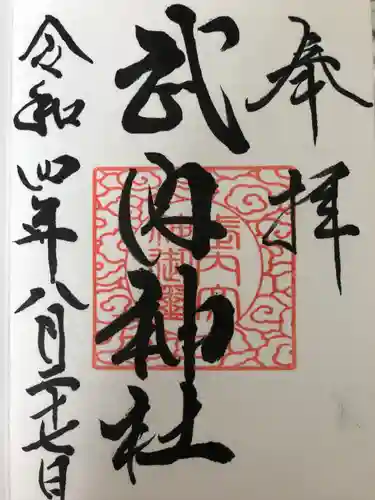 奉拝
武内神社
令和四年八月二十七日